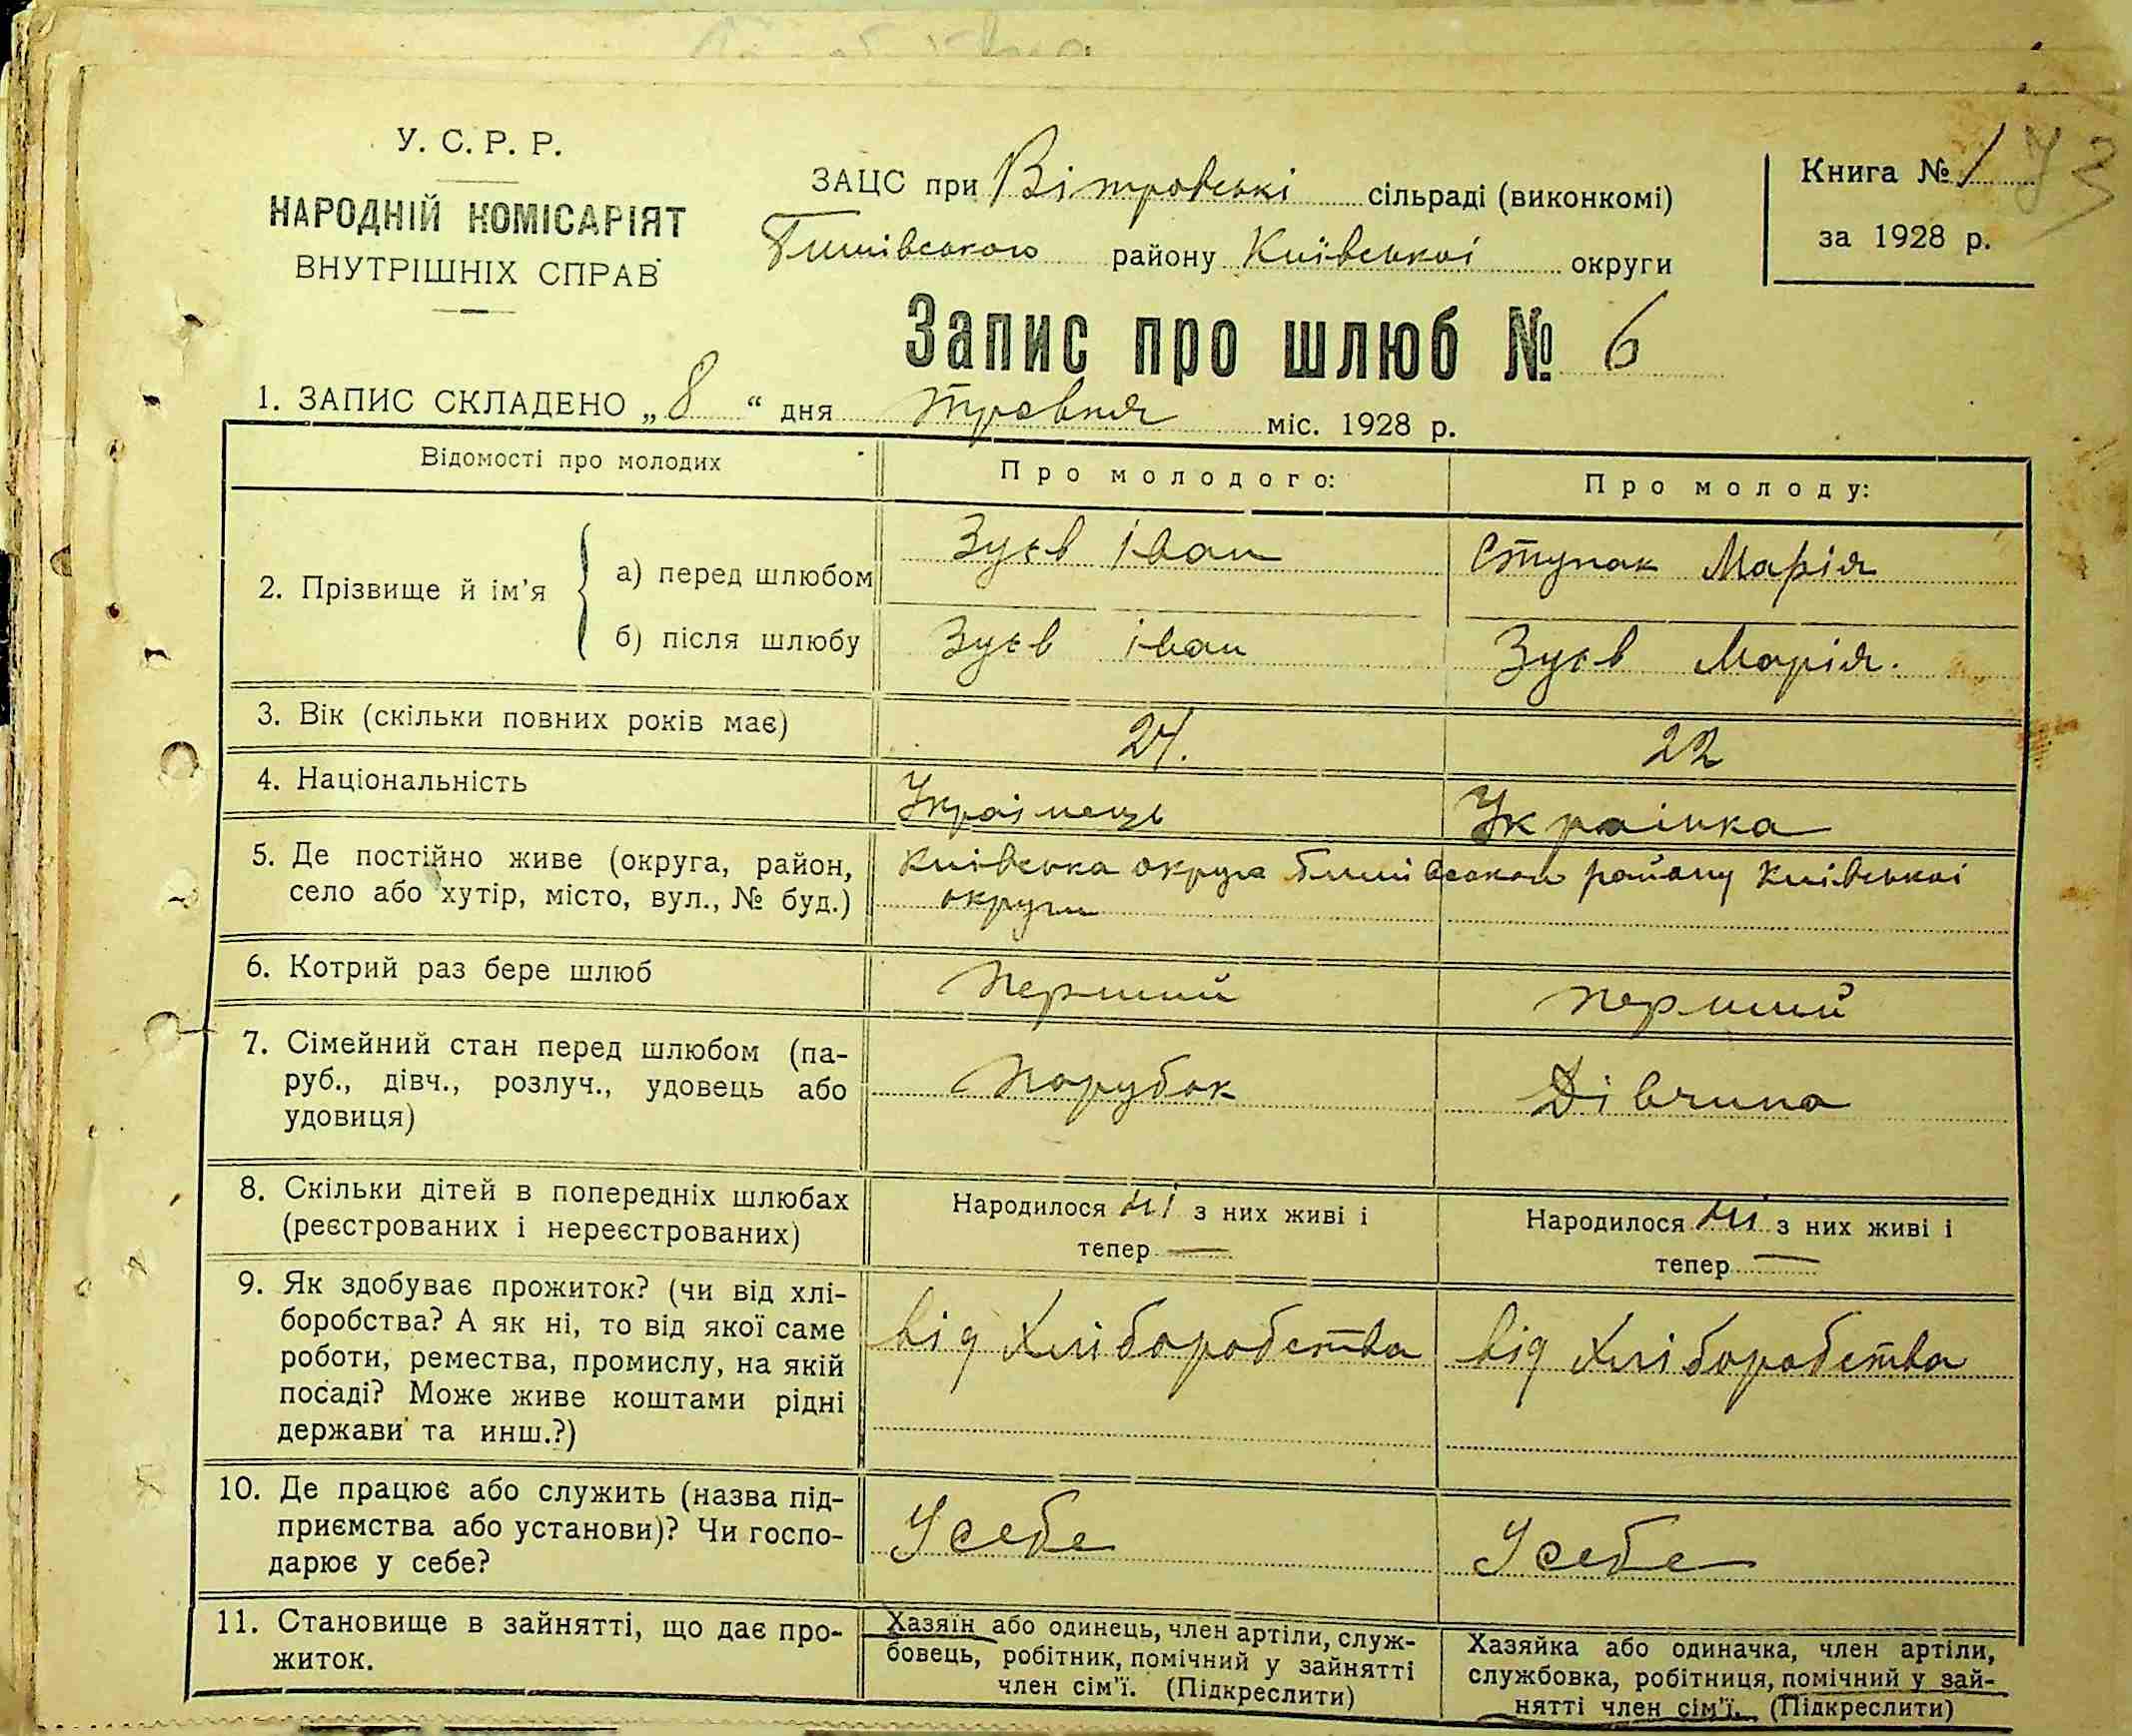 У. С. Р. Р.
НАРОДНІЙ КОМІСАРІЯТ
ВНУТРІШНІХ СПРАВ
ЗАЦС при Вітровські сільраді (виконкомі)
Бишівського району Київської округи
Книга № 1
за 1928 р.
73
Запис про шлюб № 6
1. ЗАПИС СКЛАДЕНО „8“ дня травня міс. 1928 р.
Відомості про молодих
Про молодого:
Про молоду:
2. Прізвище й ім'я
а) перед шлюбом
Зуєв Іван
Ступак Марія
б) після шлюбу
Зуєв Іван
Зуєв Марія.
3. Вік (скільки повних років має)
24.
22
4. Національність
Украінець
Украінка
5. Де постійно живе (округа, район,
село або хутір, місто, вул., № буд.)
Київська округа Бишівського району Київськоі
округи
6. Котрий раз бере шлюб
перший
перший
7. Сімейний стан перед шлюбом (па-
руб., дівч., розлуч., удовець або
удовиця)
Парубок
Дівчина
8. Скільки дітей в попередніх шлюбах
(реєстрованих і нереєстрованих)
Народилося ні з них живі і
тепер —
Народилося ні з них живі і
тепер —
9. Як здобуває прожиток? (чи від хлі-
боробства? А як ні, то від якої саме
роботи, ремества, промислу, на якій
посаді? Може живе коштами рідні
держави та инш.?)
від Хліборобства
від Хліборобства
10. Де працює або служить (назва під-
приємства або установи)? Чи госпо-
дарює у себе?
У себе
У себе
11. Становище в зайнятті, що дає про-
житок.
Хазяїн або одинець, член артіли, служ-
бовець, робітник, помічний у зайнятті
член сім'ї. (Підкреслити)
Хазяйка або одиначка, член артіли,
службовка, робітниця, помічний у зай-
нятті член сім'ї. (Підкреслити)